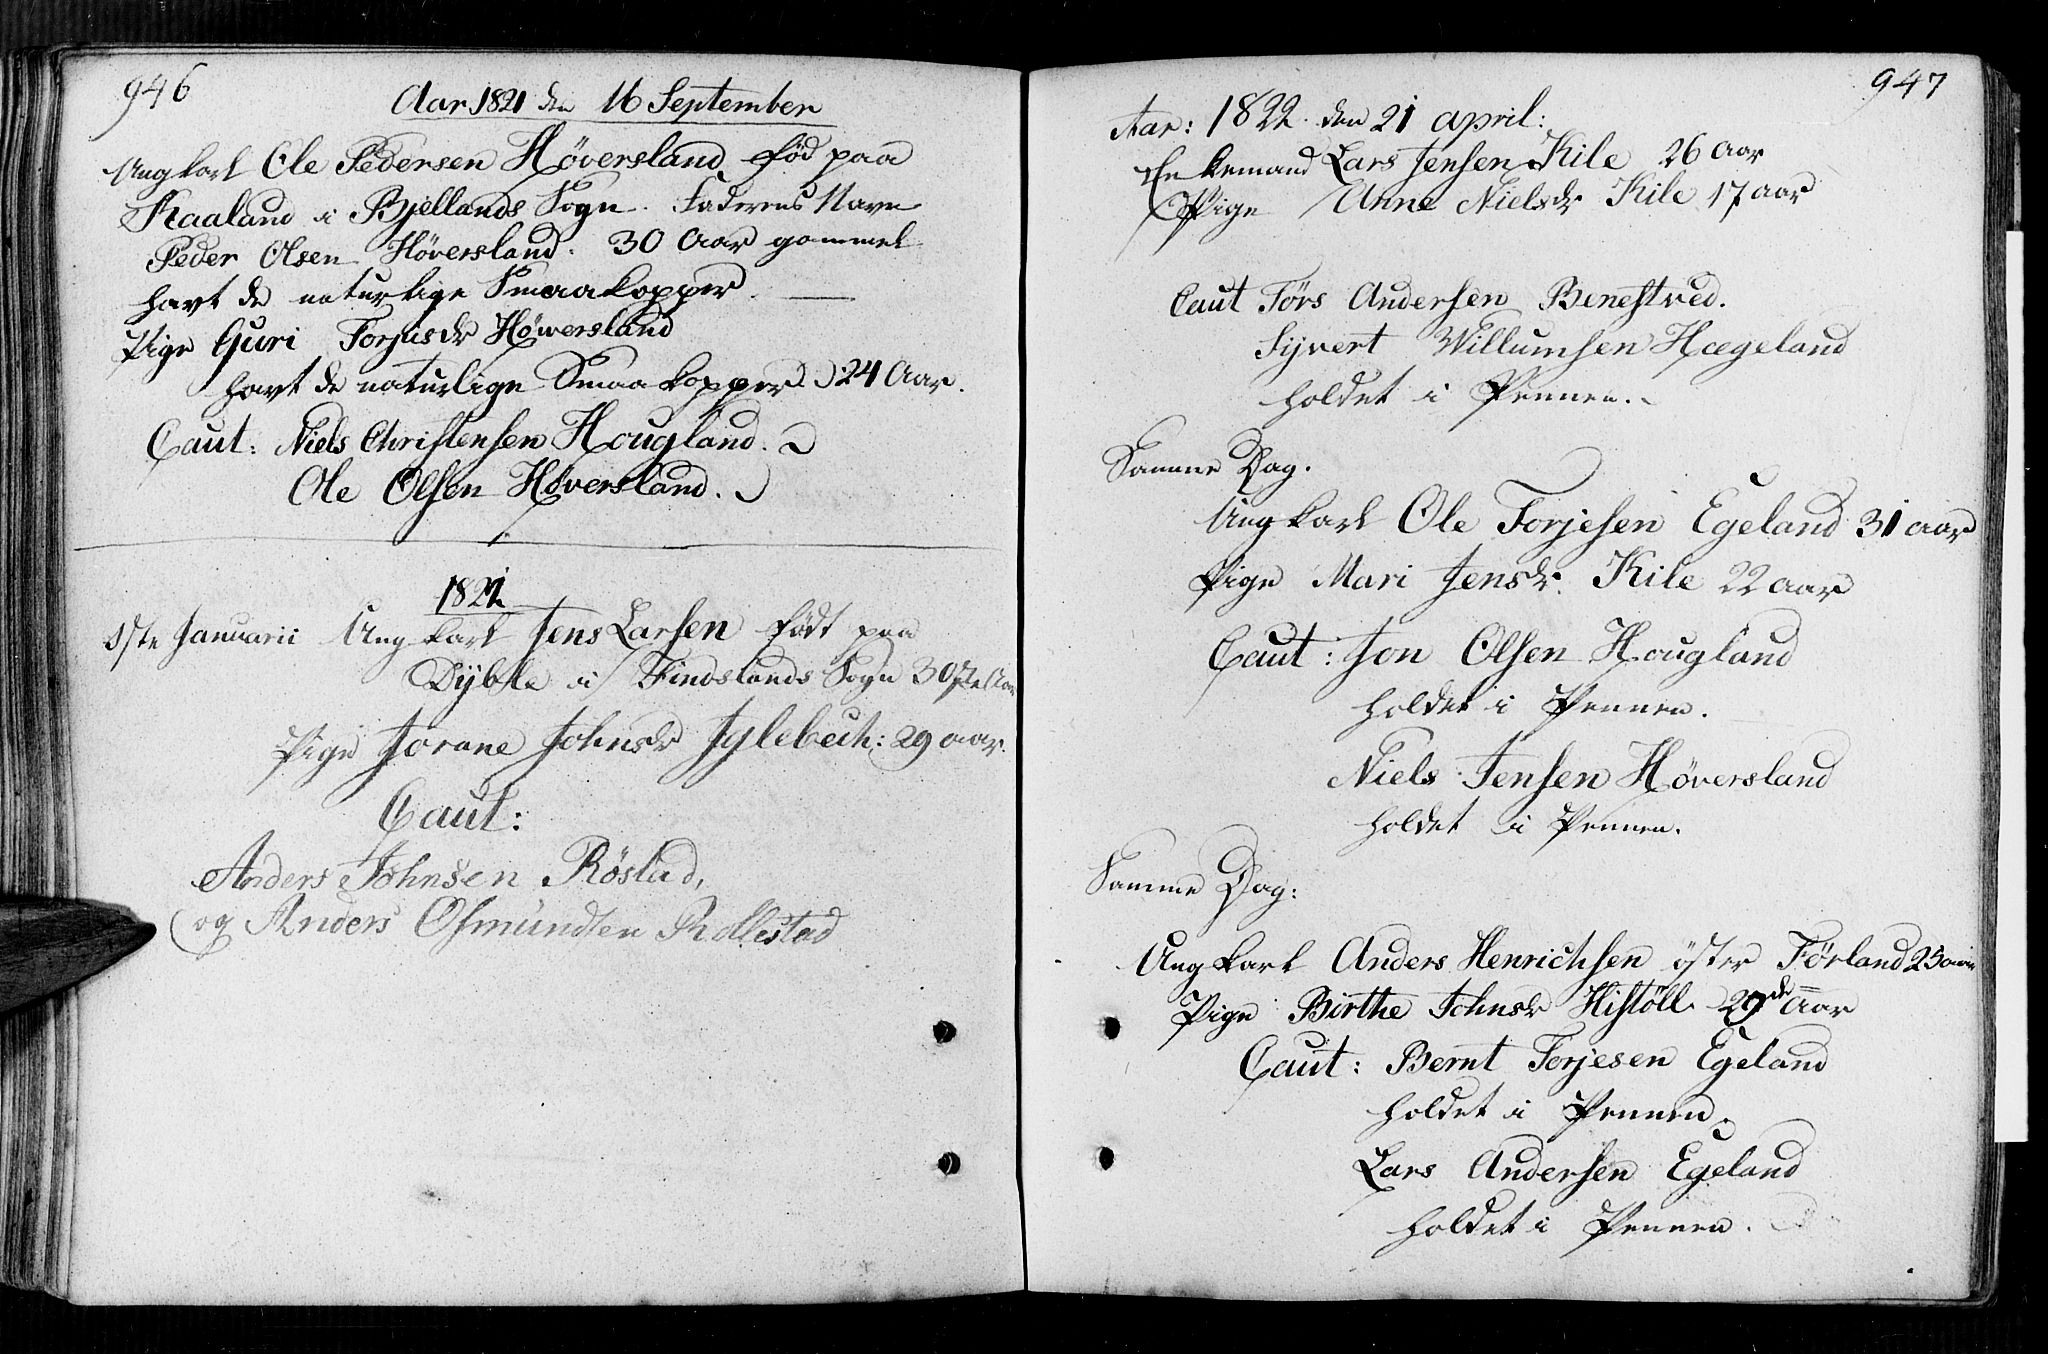 946
Aar 1821 den 16 September
Ungkarl Ole Pedersen Höversland fød paa
Kaaland i Bjellands Sogn. Faderens Navn
Peder Olsen Höversland. 30 Aar gammel
havt de naturlige Smaakopper.
Pige Guri Torjusdr Höwersland
havt de naturlige Smaakopper. 24 Aar.
Caut: Niels Christensen Hougland.
Ole Olsen Höversland.
Januarii Ungkarl Jens Larsen født paa
i Findslands Sogn Aar
Pige Jorane Johnsdr Iglebech: 29 aar.
Caut:
Anders Johnsen Röstad,
og Anders Osmundsen Rollestad
947
Aar: 1822. den 21 april:
Enkemand Lars Jensen Kile 26 Aar
Pige Anne Nielsdr Kile 17 aar
Caut Törs Andersen Benestved.
Sijvert Willumsen Hægeland
holdet i Pennen.
Samme Dag.
Ungkarl Ole Torjesen Egeland 31 aar
Pige Mari Jensdr. Kile 22 aar
Caut: Jon Olsen Hougland
holdet i Pennen.
Niels Jensen Höversland
holdet i Pennen.
Samme Dag:
Ungkarl Anders Henrichsen öster Förland 25 aar
Pige Birthe Johnsdr Histöll 29de Aar
Caut: Bernt Torjesen Egeland
holdet i Pennen.
Lars Andersen Egeland
holdet i Pennen.